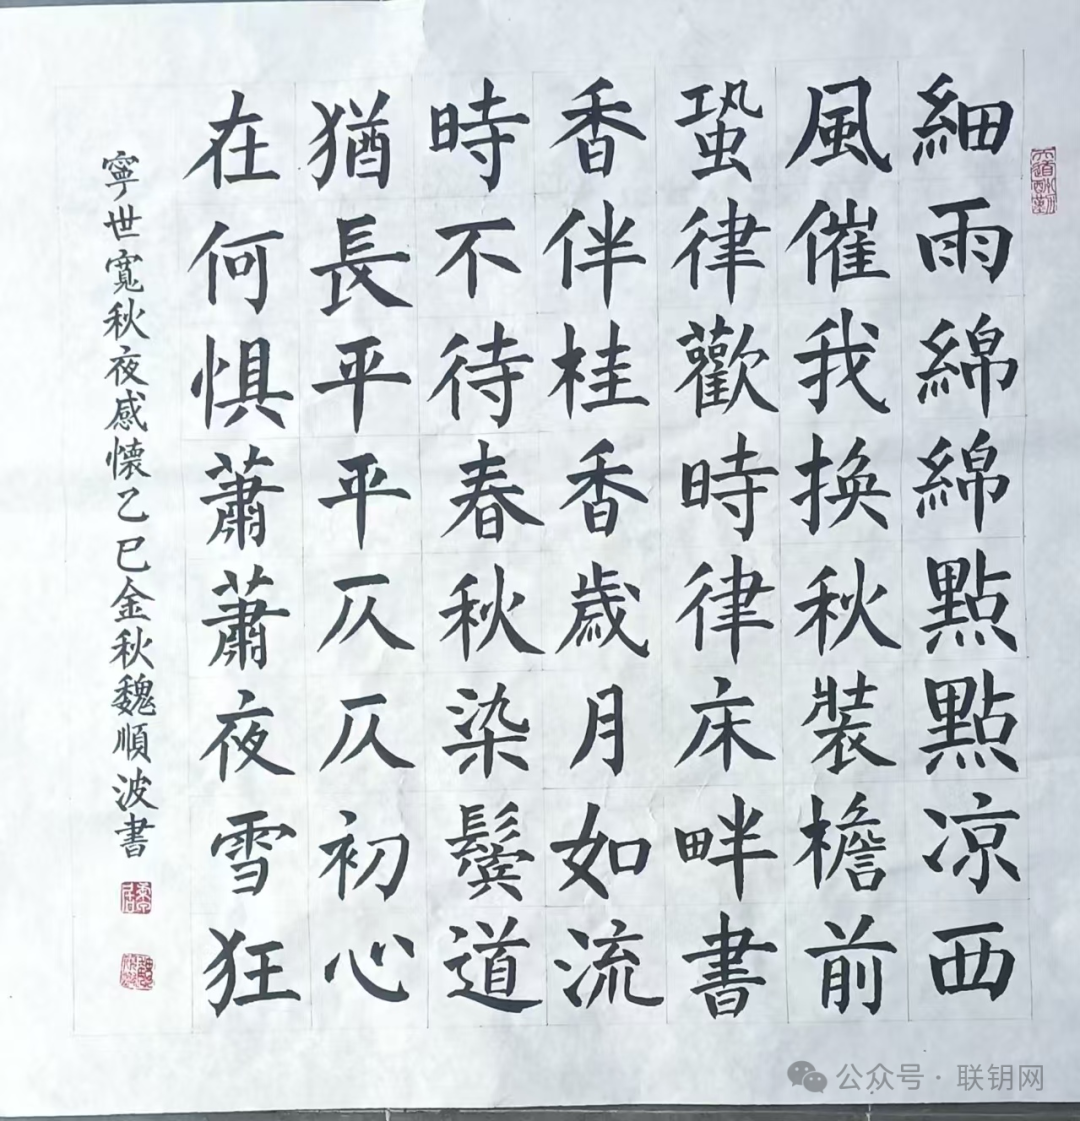 細雨綿綿點點凉西
風催我换秋裝檐前
蛩律歡時律床畔書
香伴桂香歲月如流
時不待春秋染鬓道
猶長平平仄仄初心
在何惧蕭蕭夜雪狂
寧世寬秋夜感懷乙巳金秋魏順波書
公众号·联钥网